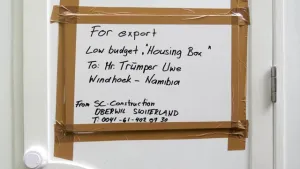 For export
Low budget "Housing Box"
To: Mr. Trümper Uwe
Windhoek - Namibia
From SC-Construction
OBERWIL SWITTERLAND
T: 0041-61-402 07 30